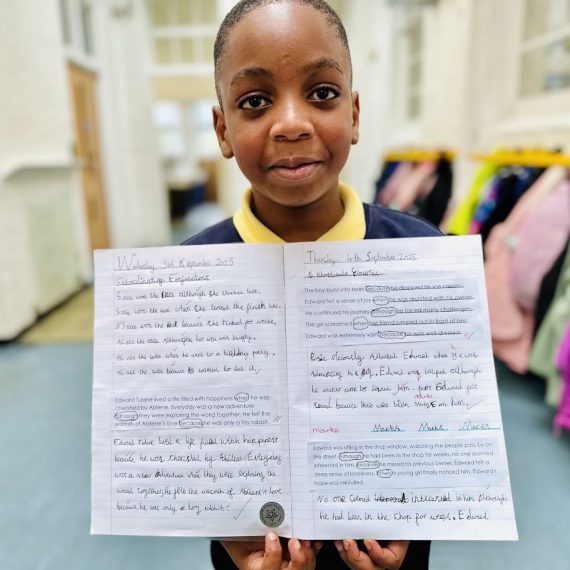 Wednesday 3rd September 2025
Subordinating Conjunctions
Sara won the race although she started last.
Sara won the race when she crossed the finish line.
Sara won the because she trained for weeks.
Ali ate the cake although he was not hungry.
Ali ate the cake when he went to a birthday party.
Ali ate the cake because he wanted to
Edward Tulane lived a life filled with happiness when he was
cherished by Abilene. Everyday was a new adventure
although they were exploring the world together. He felt the
warmth of Abilene's love because he was only a toy rabbit.
Edward Tulane lived a life filled with happiness
because he was cherished by Abilene. Everyday
was a new adventure when they were exploring the
world together. He felt the warmth of Abilene's love
because he was only a toy rabbit.
Thursday 4th September 2025
The boy burst into tears because he dropped his ice-cream.
Edward felt a sense of joy when he was reunited with his owner.
He continued his journey although he faced many challenges.
The girl screamed when her friend jumped out in front of her.
Edward was extremely vain because he was well-dressed.
Edward when he was
admiring his Edward was although
he never him. Edward felt
because there was on him.
marks Marks Marks Marks
Edward was sitting in the shop window, watching the people pass by on
the street. Although he had been in the shop for weeks, no one seemed
interested in him, because he missed his previous owner, Edward felt a
deep sense of loneliness. When a young girl finally noticed him, Edward's
hope was rekindled.
No one interested in him Although
he had been in the shop for weeks. Edward